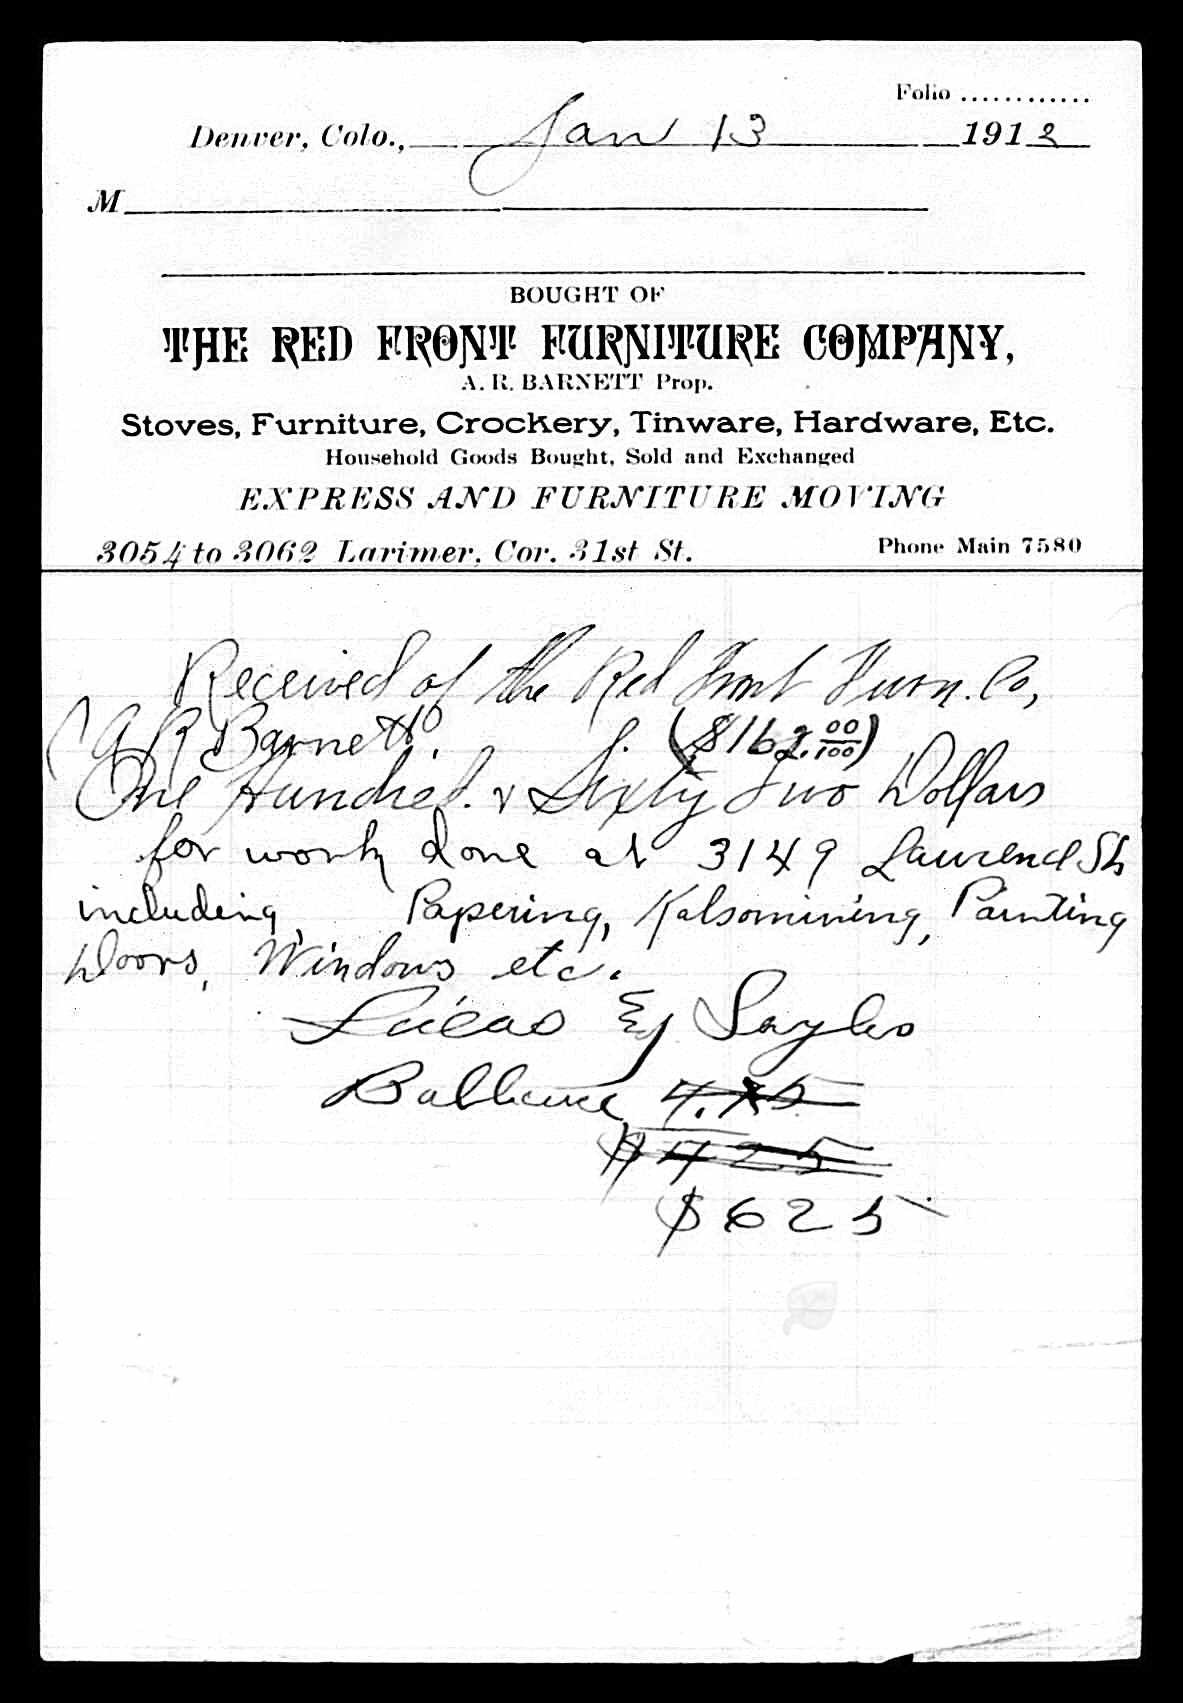 Folio ............
Denver, Colo., Jan 13 1912
M
BOUGHT OF
THE RED FRONT FURNITURE COMPANY,
A. R. BARNETT Prop.
Stoves, Furniture, Crockery, Tinware, Hardware, Etc.
Household Goods Bought, Sold and Exchanged
EXPRESS AND FURNITURE MOVING
3054 to 3062 Larimer, Cor. 31st St. Phone Main 7580
Received of the Red Front Furn. Co,
(A R Barnett) ($162.00/100)
One Hundred & Sixty Two Dollars
for work done at 3149 Lawrence St
including, Papering, Kalsomining, Painting
Doors, Windows etc.
Lucas & Sayles
Ballance 4.25
$ 425
$ 625